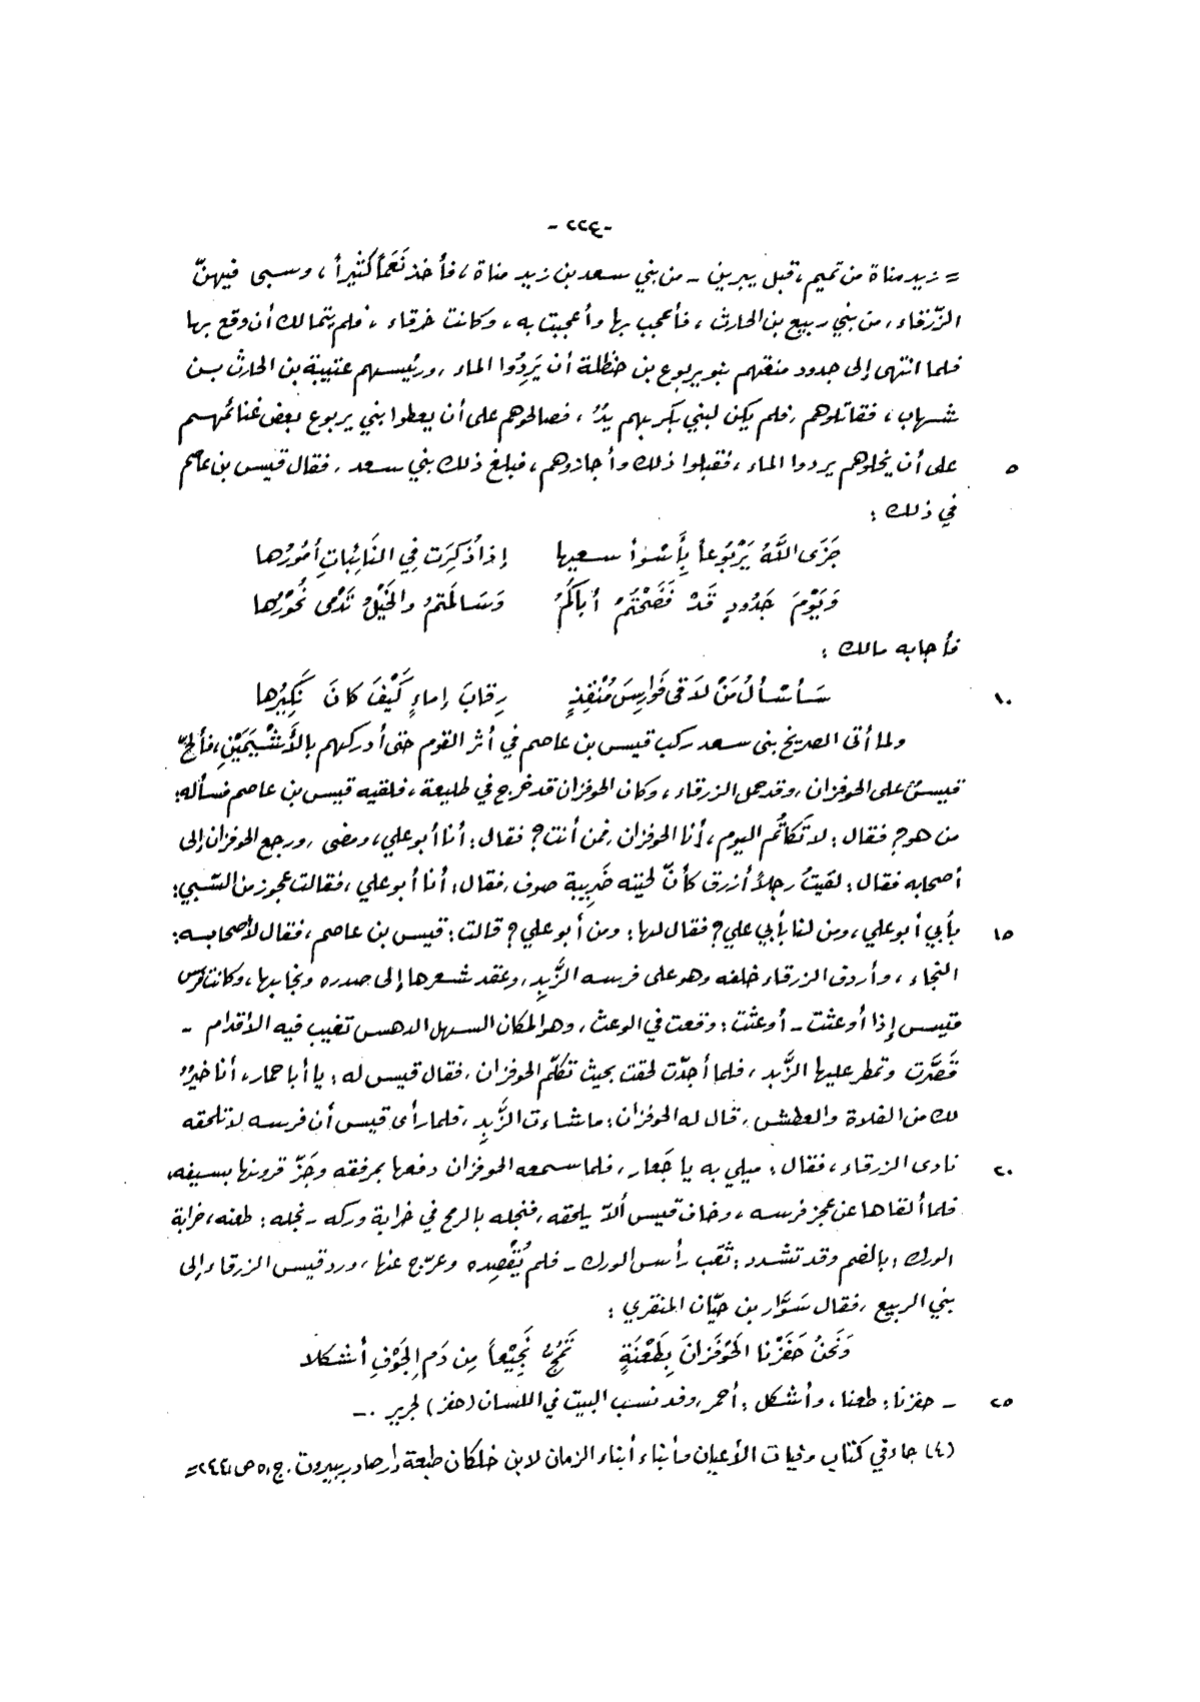 -٢٢٤-
= زيد مناة من تميم، قبل يبرين - من بني سعد بن زيد مناة، فأخذ نَعَماً كثيراً، وسبى فيهنّ
الزّرقاء، من بني ربيع بن الحارث، فأعجب بها وأعجبت به، وكانت خرقاء، فلم يتمالك أن وقع بها
فلما انتهى إلى جدود منعتهم بنو يربوع بن حنظلة أن يَرِدُوا الماء، ورئيسهم عتيبة بن الحارث بن
شهاب، فقاتلوهم، فلم يكن لبني بكر بهم يدٌ، فصالحوهم على أن يعطوا بني يربوع بعض غنائمهم
٥ على أن يخلوهم يردوا الماء، فقبلوا ذلك وأجازوهم، فبلغ ذلك بني سعد، فقال قيس بن عاصم
في ذلك:
جَزَى اللَّهُ يَرْبُوعاً بِأَسْوَأ سعيها إذا ذُكِرَت فِي النَائِبَاتِ أُمُورُها
وَيَوْمَ جَدُودٍ قَدْ فَضَحْتُمْ أباكُمُ وَسَالَمْتُمُ والخَيْلُ تَدْمَى نُحُوْرُها
فأجابه مالك:
١٠ سَأَسْأَلُ مَنْ لاَقى فَوارِسَ مُنْقِذٍ رِقابَ إماءٍ كَيْفَ كانَ نَكِيرُها
ولما أتى الصريخ بني سعد ركب قيس بن عاصم في أثر القوم حتى أدركهم بالأَشْيَمَيْنِ، فألحّ
قيسٌ على الحوفزان، وقد حمل الزرقاء، وكان الحوفزان قد خرج في طليعة، فلقيه قيس بن عاصم فسأله:
من هو؟ فقال: لا تَكاتُم اليوم، أنا الحوفزان، فمن أنت؟ فقال: أنا أبو علي، ومضى، ورجع الحوفزان إلى
أصحابه فقال: لقيتُ رجلاً أزرق كأنّ لحيته ضَرِيبة صوف، فقال: أنا أبو علي، فقالت عجوز من السّبي:
١٥ بأبي أبو علي، ومن لنا بأبي علي؟ فقال لها: ومن أبو علي؟ قالت: قيس بن عاصم، فقال لأصحابه:
النجاء، وأردف الزرقاء خلفه وهو على فرسه الزَّبِدِ، وعقد شعرها إلى صدره ونجا بها، وكانت فرس
قيس إذا أوعثت - أوعثت: وقعت في الوعث، وهو المكان السهل الدهس تغيب فيه الأقدام -
قَصَّرَت وتمطر عليها الزَّبِد، فلما أجدّت لحقت بحيث تكلّم الحوفزان، فقال قيس له: يا أبا حمار، أنا خيرٌ
لك من الفلاة والعطش، قال له الحوفزان: ما شاءت الزَّبِدِ، فلما رأى قيس أن فرسه لا تلحقه
٢٠ نادى الزرقاء، فقال: ميلي به يا جَعار، فلما سمعه الحوفزان دفعها بمرفقه وجَزّ قرونها بسيفه،
فلما ألقاها عن عجز فرسه، وخاف قيس ألاّ يلحقه، فنجله بالرمح في خرابة وركه - نجله: طعنه، خرابة
الورك: بالضم وقد تشدد: ثقب رأس الورك - فلم يُقْصِده وعرّج عنها، ورد قيس الزرقاء إلى
بني الربيع، فقال سَوَّار بن حيّان المنقري:
وَنَحنُ حَفَزْنا الحَوْفَزانَ بِطَعْنَةٍ تَمُجُّ نَجِيْعاً مِن دَمِ الجَوْفِ أشكلا
٢٥ - حفزنا: طعنا، وأشكل: أحمر، وقد نسب البيت في اللسان (حفز) لجرير. -
(٤) جاء في كتاب وفيات الأعيان وأنباء أبناء الزمان لابن خلكان طبعة دار صادر ببيروت. ج،٥ ص،٢٤٤ =